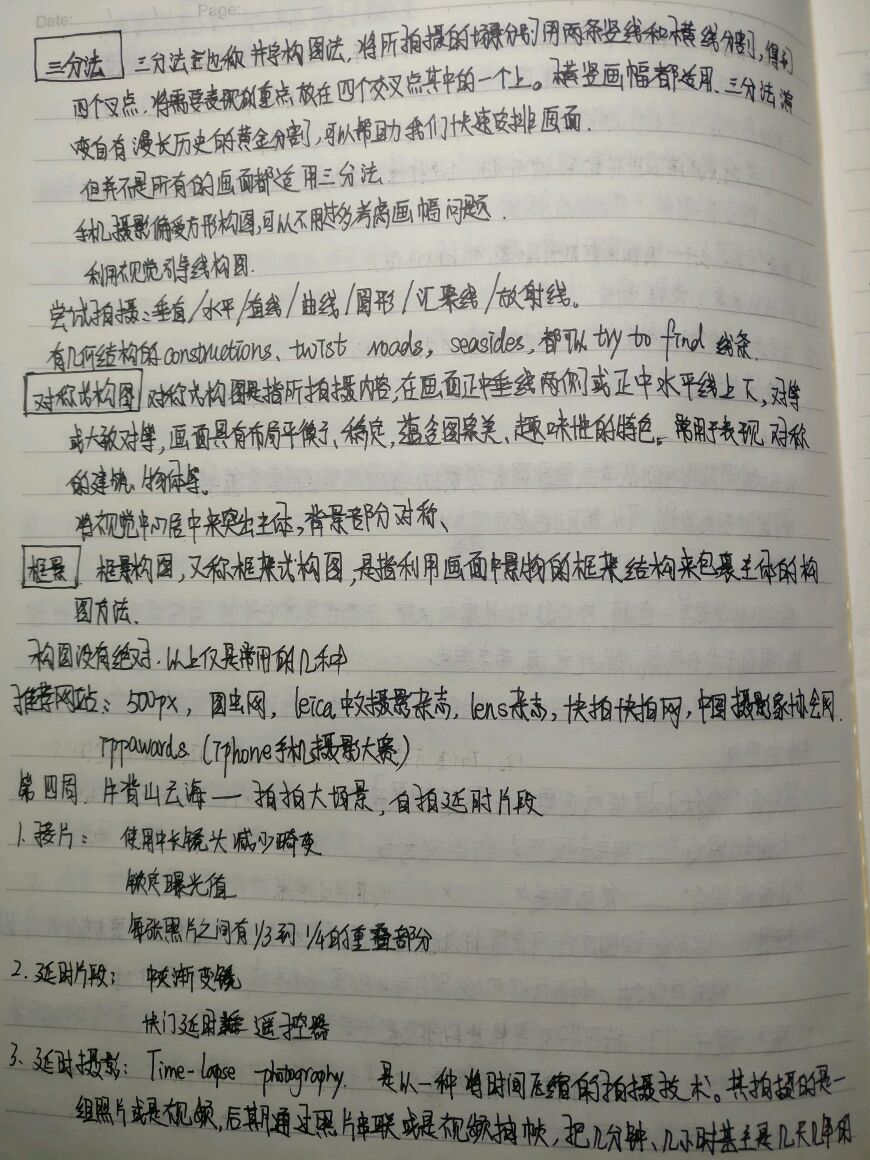 Date: Page:
三分法 三分法也称井字构图法,将所拍摄的场景分割用两条竖线和横线分割,得到
四个叉点,将需要表现的重点放在四个交叉点其中的一个上。横竖画幅都适用、三分法演
变自有漫长历史的黄金分割,可以帮助我们快速安排画面.
但并不是所有的画面都适用三分法.
手机摄影偏爱方形构图,可以不用过多考虑画幅问题.
利用视觉引导线构图.
尝试拍摄:垂直/水平/直线/曲线/圆形/汇聚线/放射线。
有几何结构的constructions、twist roads, seasides, 都可以 try to find 线条.
对称式构图 对称式构图是指所拍摄内容,在画面正中垂线两侧或正中水平线上下,对等
或大致对等,画面具有布局平衡、稳定,蕴含图案美、趣味性的特色。常用于表现对称
的建筑、物体等。
将视觉中心居中来突出主体,背景部分对称、
框景 框景构图,又称框架式构图,是指利用画面中景物的框架结构来包裹主体的构
图方法.
构图没有绝对.以上仅是常用的几种
推荐网站:500px, 图虫网, leica中文摄影杂志, lens杂志, 快拍快拍网,中国摄影家协会网.
Ippawards. (Iphone手机摄影大赛)
第四周. 背山云海—拍拍大场景,自拍延时片段
1.接片: 使用中长镜头减少畸变
锁定曝光值
每张照片之间有1/3到1/4的重叠部分
2.延时片段: 中灰渐变镜
快门延时 遥控器
3.延时摄影: Time-lapse photography. 是以一种将时间压缩的拍摄技术。其拍摄的是一
组照片或是视频,后期通过照片串联或是视频抽帧,把几分钟、几小时甚至是几天几年的